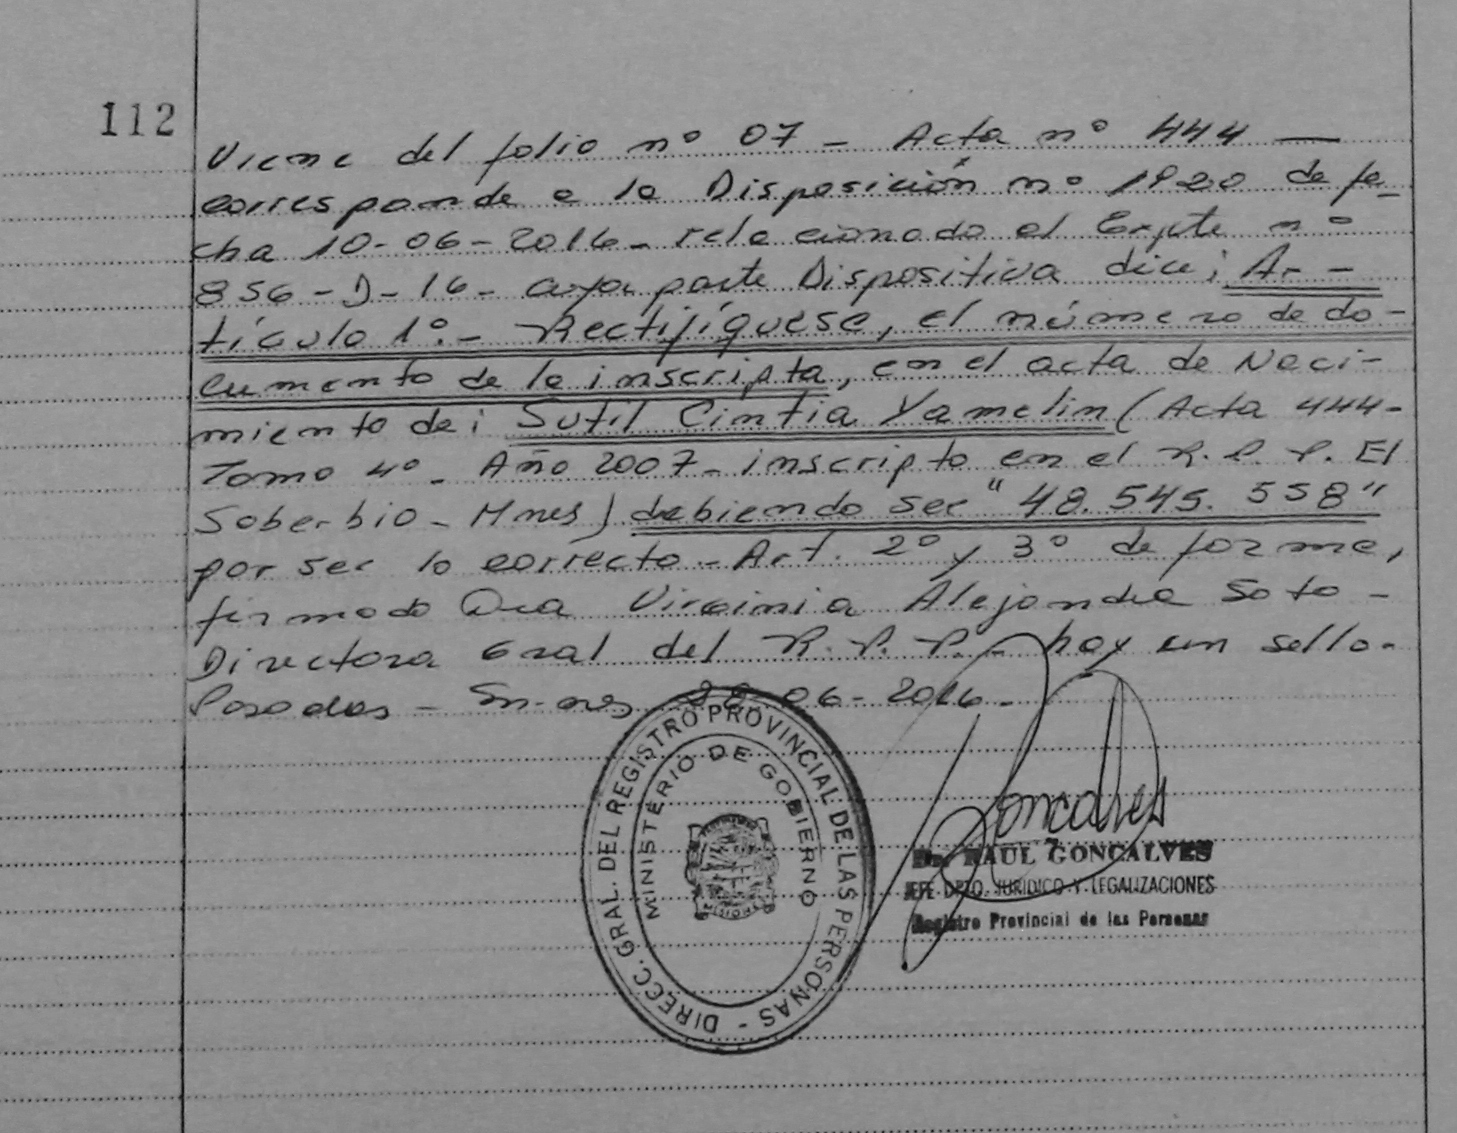 112
Viene del folio nº 07 - Acta nº 444 —
corresponde a la Disposición nº 1920 de fe-
cha 10-06-2016 - relacionado al Expte nº
856-D-16 - cuya parte Dispositiva dice; Ar-
tículo 1º.- Rectifíquese, el número de do-
cumento de la inscripta, en el acta de Naci-
miento de; Sutil Cintia Yamelin (Acta 444-
Tomo 4º - Año 2007 - inscripto en el R. P. P. El
Soberbio - Mnes) debiendo ser "48.545.558"
por ser lo correcto - Art. 2º y 3º de forma,
firmado Dra Virginia Alejandra Soto -
Directora Gral del R. P. P. - hay un sello.
Posadas - 06-2016.
DIRECC. GRAL. DEL REGISTRO PROVINCIAL DE LAS PERSONAS -
MINISTERIO DE GOBIERNO
MISIONES
Goncalves
Dr. RAUL GONCALVES
JEFE DPTO. JURIDICO Y LEGALIZACIONES
Registro Provincial de las Personas